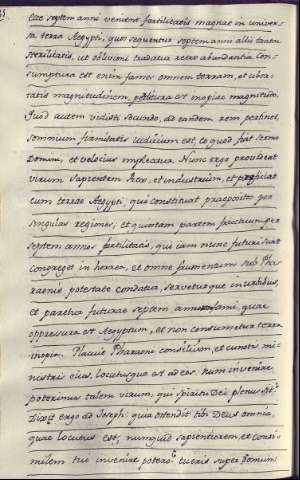 Ecce septem anni venient fertilitatis magnae in univer-
sa terra Aegypti, quos sequentur septem anni alii tantae
sterilitatis, ut oblivioni tradatur retro abundantia Con-
sumptura est enim fames omnem terram, et uber-
tatis magnitudinem, perditura est inopiae magnitudo.
Quod autem vidisti secundo, ad eandem rem pertinet,
somnium firmitatis iudicium est, eo quod fiat sermo
Domini, et velocius impleatur. Nunc ergo provideat
virum sapientem Rex, et industrium, et praeficiat
eum terrae Aegypti, qui constituat praepositos per
singulas regiones, et quintam partem fructuum per
septem annos fertilitatis, qui iam nunc futuri sunt
congreget in horrea, et omne frumentum sub Pha-
raonis potestate condatur, serveturque in urbibus,
et paretur futurae septem annorum fami, quae
oppressura est Aegyptum, et non consumetur terra
inopia. Placuit Pharaoni consilium, et cunctis mi-
nistris eius, locutusque est ad eos: num invenire
poterimus talem virum, qui Spiritu Dei plenus sit?
Dixit ergo ad Joseph: quia ostendit tibi Deus omnia,
quae locutus est, numquid sapientiorem, et consi-
milem tui invenire potero? eris super Domum